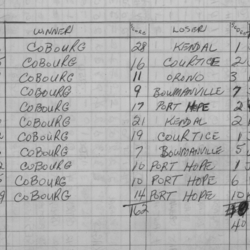 WINNER SCORE LOSER SCORE
COBOURG 28 KENDAL 1
COBOURG 16 COURTICE 2
COBOURG 11 ORONO 3
COBOURG 9 BOWMANVILLE 7
COBOURG 17 PORT HOPE 2
COBOURG 21 KENDAL 2
COBOURG 19 COURTICE 1
COBOURG 7 BOWMANVILLE 5
COBOURG 10 PORT HOPE 1
COBOURG 10 PORT HOPE 6
COBOURG 14 PORT HOPE
162
40